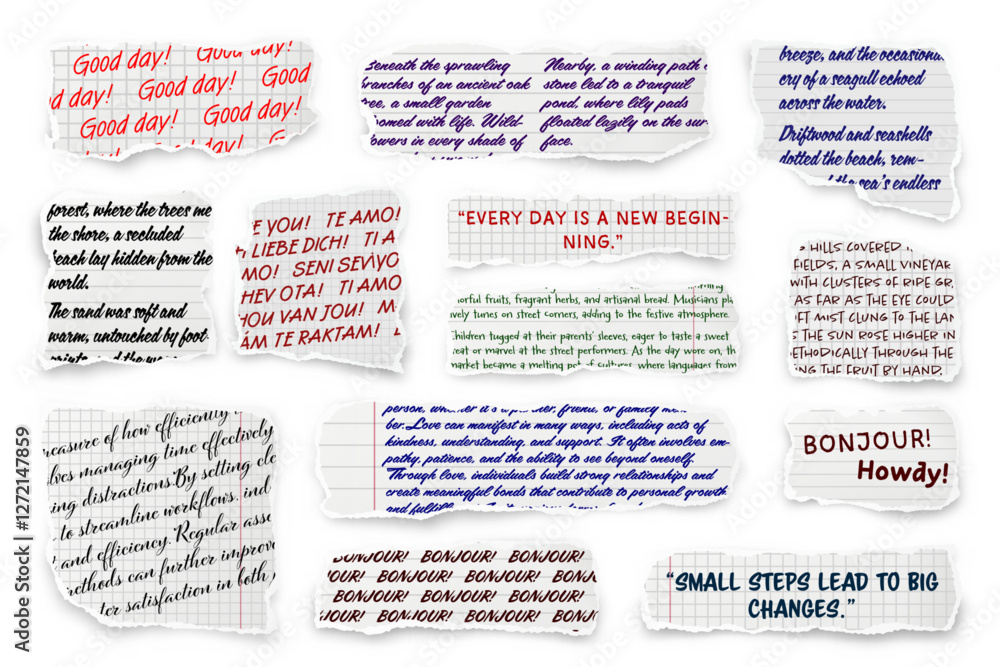 Good day! Good day!
Good day! Good day! Good
d day! Good day! Good
Good day! Good day!
sprawling
branches of an ancient oak
tree, a small garden
oomed with life. Wild-
owers in every shade of
Nearby, a winding path
stone led to a tranquil
pond, where lily pads
floated lazily on the sur-
face.
breeze, and the occasional
cry of a seagull echoed
across the water.
Driftwood and seashells
dotted the beach, rem-
the sea's endless
forest, where the trees me
the shore, a secluded
each lay hidden from the
world.
The sand was soft and
warm, untouched by foot-
E YOU! TE AMO!
LIEBE DICH! TI A
MO! SENI SEVIYO
HEV OTA! TI AMO
HOU VAN JOU! M
ÁM TE RAKTAM!
“EVERY DAY IS A NEW BEGIN-
NING.”
orful fruits, fragrant herbs, and artisanal bread. Musicians pla
vely tunes on street corners, adding to the festive atmosphere.
Children tugged at their parents' sleeves, eager to taste a sweet
reat or marvel at the street performers. As the day wore on, th
market became a melting pot of cultures, where languages from
HILLS COVERED
FIELDS, A SMALL VINEYAR
WITH CLUSTERS OF RIPE GR
AS FAR AS THE EYE COULD
FT MIST CLUNG TO THE LAN
S THE SUN ROSE HIGHER IN
ETHODICALLY THROUGH THE
NG THE FRUIT BY HAND,
easure of how efficiently
lves managing time effectively
ing distractions.By setting cle
to streamline workflows, ind
and efficiency. Regular asse
ethods can further improve
ter satisfaction in both
person, whether it's a partner, friend, or family mem-
ber.Love can manifest in many ways, including acts of
kindness, understanding, and support. It often involves em-
pathy, patience, and the ability to see beyond oneself.
Through love, individuals build strong relationships and
create meaningful bonds that contribute to personal growth
BONJOUR!
Howdy!
BONJOUR! BONJOUR! BONJOUR!
JOUR! BONJOUR! BONJOUR! BONJ
BONJOUR! BONJOUR! BONJOUR!
BONJOUR! BONJOUR! BONJOUR!
“SMALL STEPS LEAD TO BIG
CHANGES.”
Adobe Stock | #1272147859